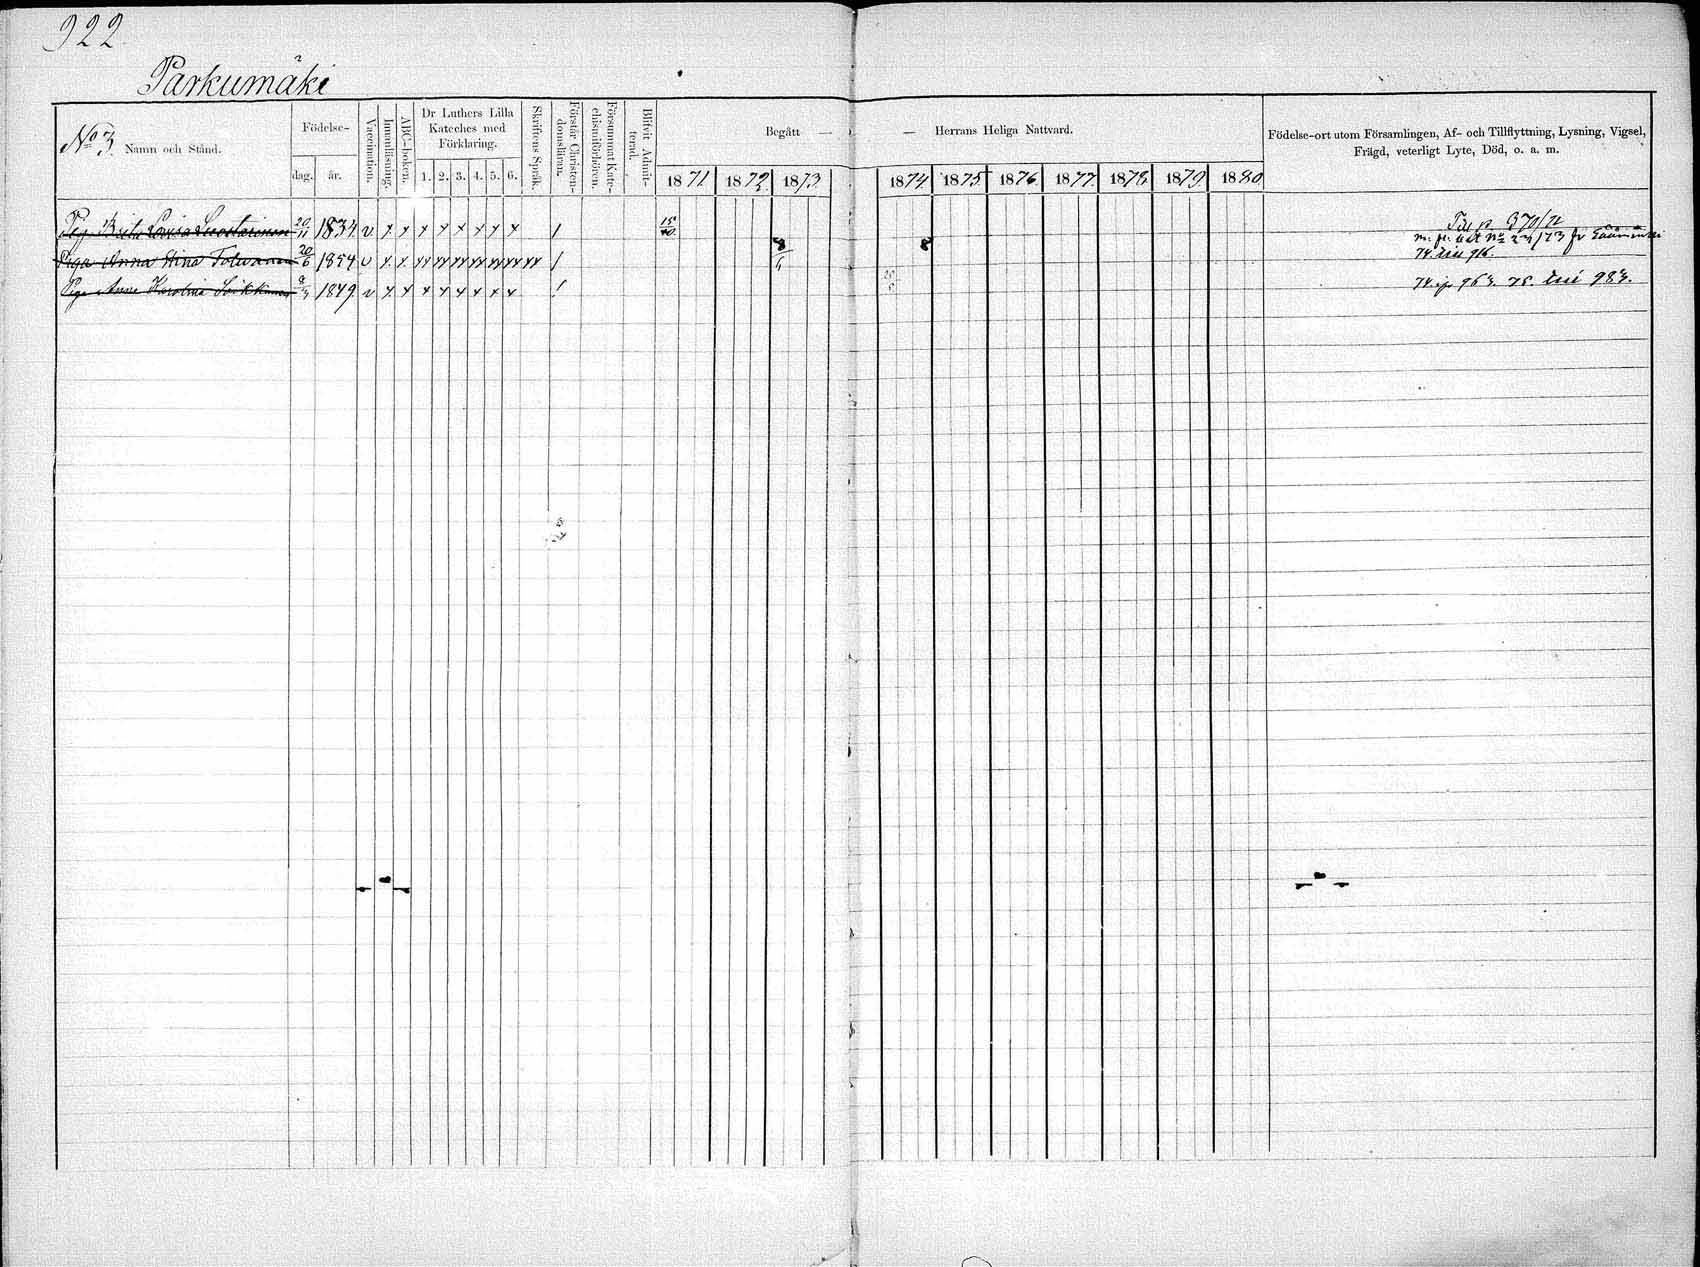 922
Parkumäki
No 3. Namn och Stånd.
Födelse-
dag. år.
Vaccination.
Innanläsning.
ABC-boken.
Dr Luthers Lilla
Kateches med
Förklaring.
1. 2. 3. 4. 5. 6.
Skriftens Språk.
Förstår Christen-
domsläran.
Försummat Kate-
chismiförhören.
Blifvit Admit-
terad.
Begått — — Herrans Heliga Nattvard.
1871 1872. 1873. 1874. 1875. 1876. 1877. 1878. 1879. 1880.
Födelse-ort utom Församlingen, Af- och Tillflyttning, Lysning, Vigsel,
Frägd, veterligt Lyte, Död, o. a. m.
Pig. Brita Lovisa Luostarinen 20/11 1834 v x x x x x x x x / 15/10 Till p. 370/71
m. fl. bet No 23/73 fr Säämin
Piga Anna Stina Tolvanen 20/6 1854 v x x xx xx xx xx xx xx xx / 8/6 8 74 916.
Piga Anna Karolina 1849. v x x x x x x x x / 74 963. 75. 983.